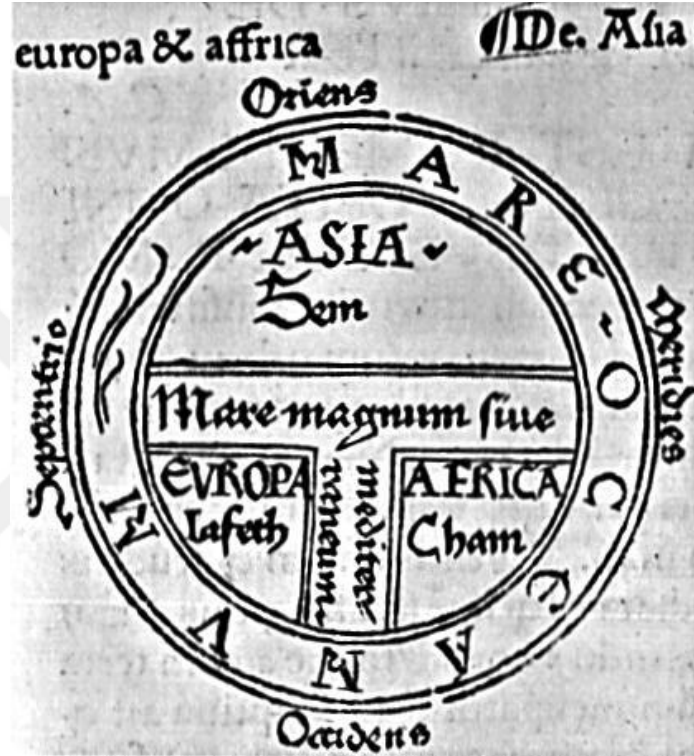 europa & affrica
De. Asia
Oriens
MARE OCEANVM
ASIA
Sem
Septentrio
Meridies
Mare magnum siue
EVROPA
Iafeth
mediterr
raneum
AFRICA
Cham
Occidens